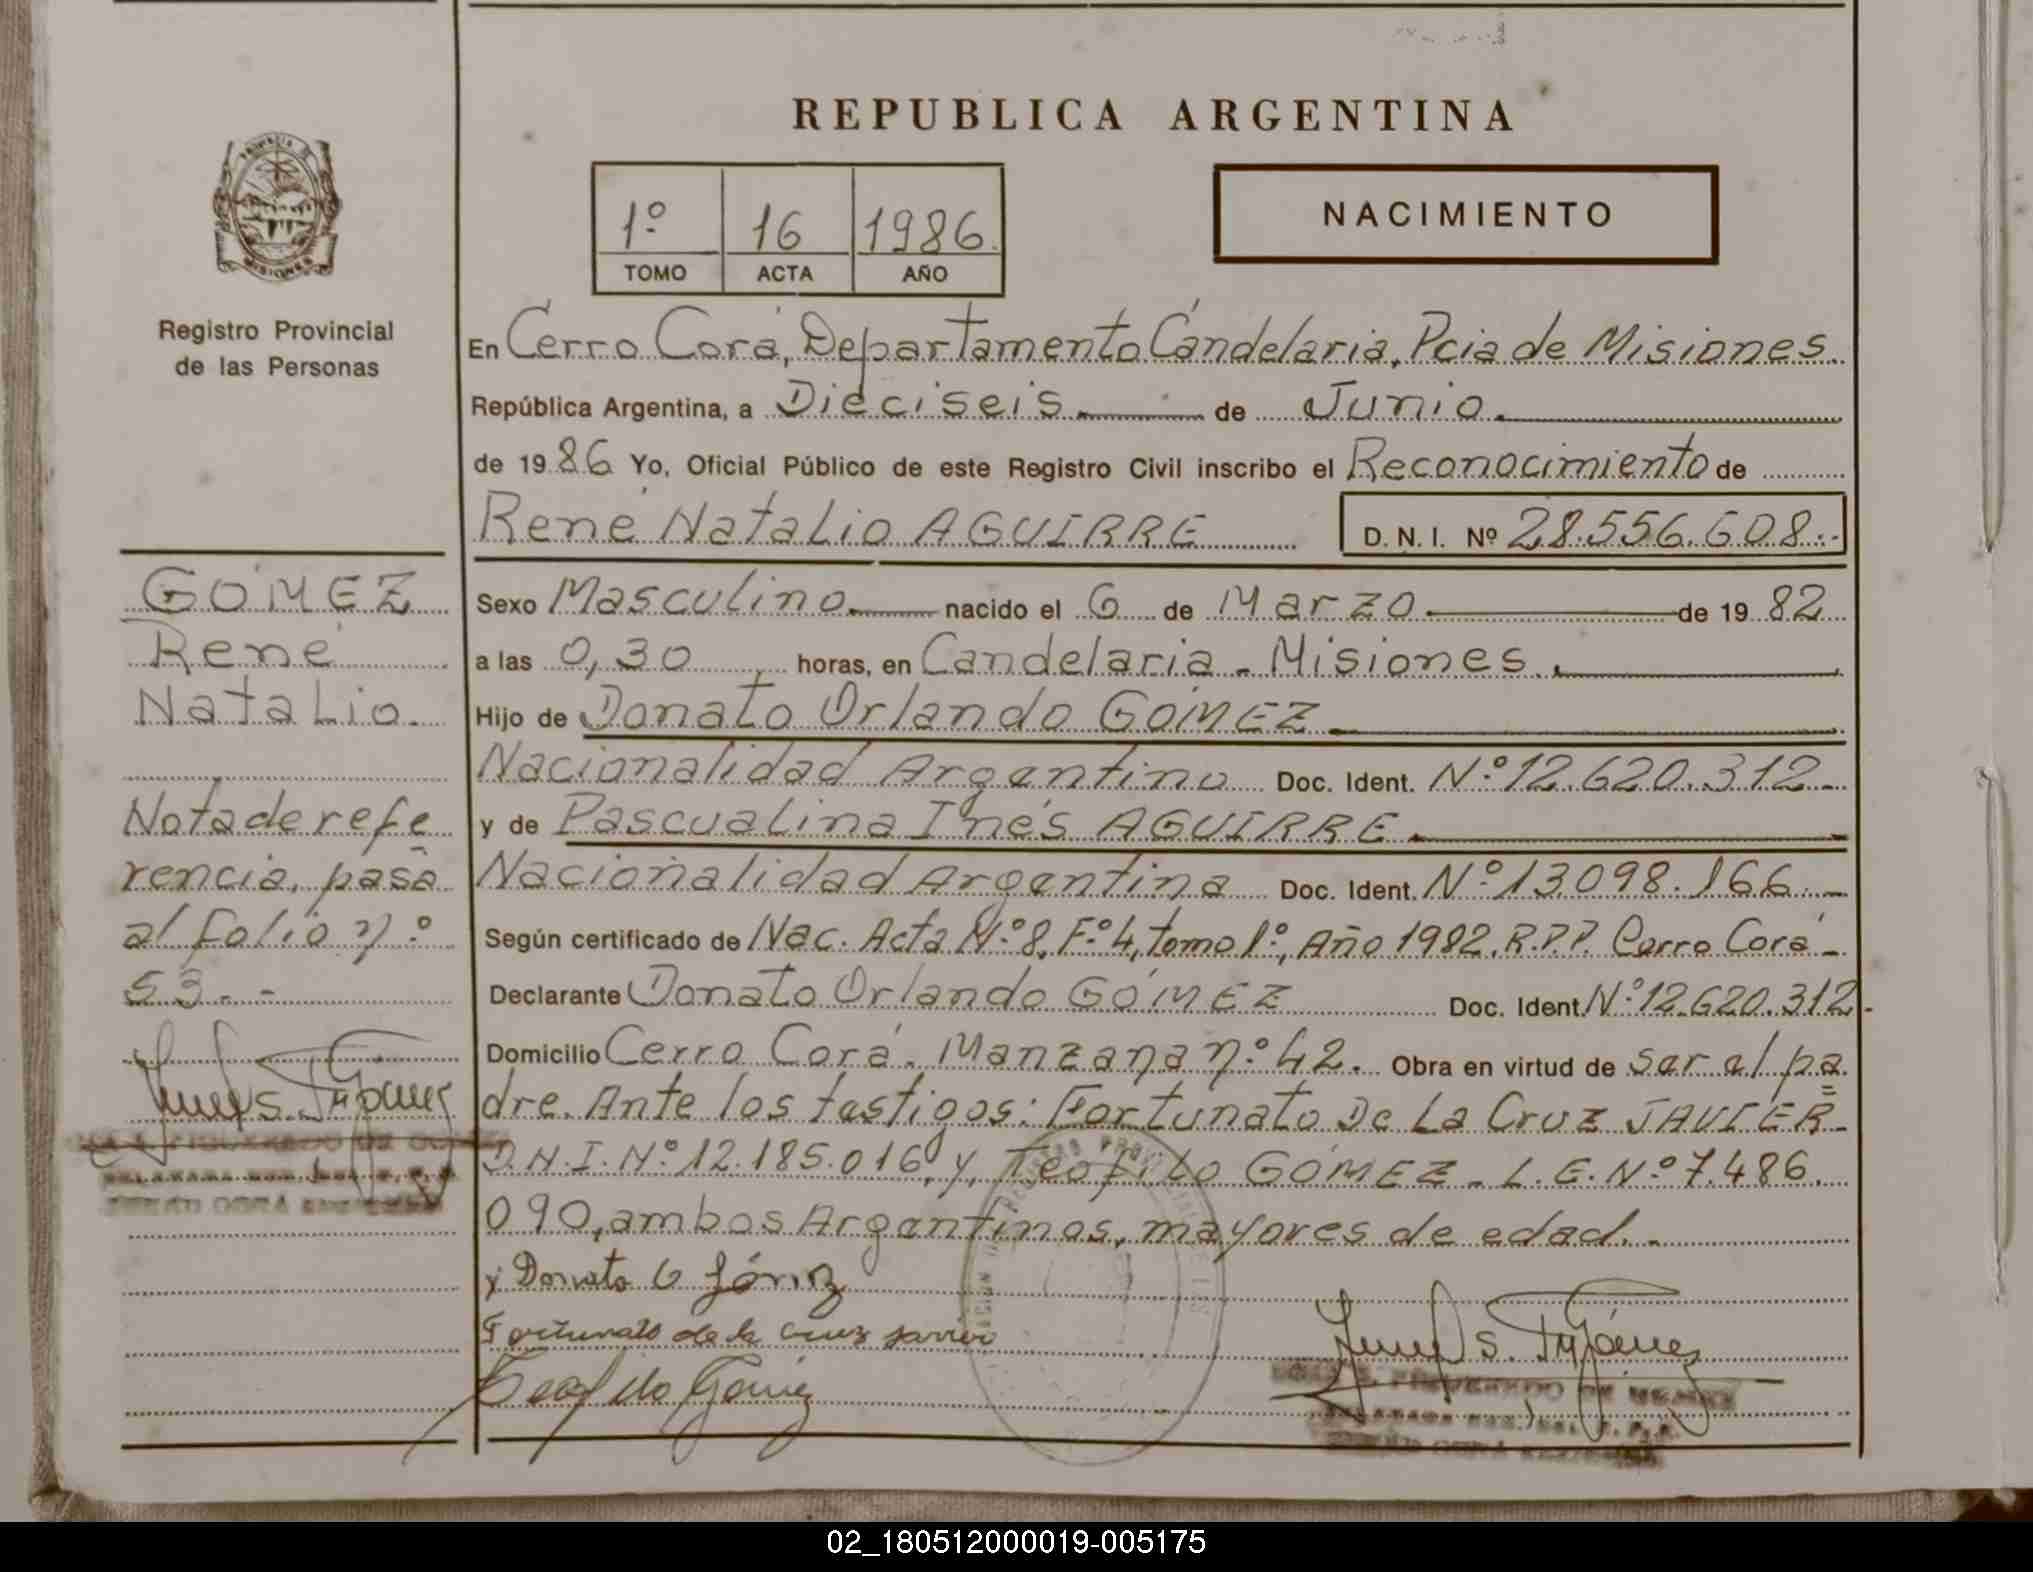 REPUBLICA ARGENTINA
1º 16 1986.
TOMO ACTA AÑO
NACIMIENTO
MISIONES
Registro Provincial
de las Personas
GOMEZ
René
Natalio.
Nota de refe
rencia, pasa
al folio nº
53.-
En Cerro Corá, Departamento Candelaria, Pcia de Misiones.
República Argentina, a Dieciseis de Junio.
de 1986 Yo, Oficial Público de este Registro Civil inscribo el Reconocimiento de
René Natalio AGUIRRE D. N. I. Nº 28.556.608.-
Sexo Masculino. nacido el 6 de Marzo de 1982
a las 0,30 horas, en Candelaria - Misiones.
Hijo de Donato Orlando GOMEZ
Nacionalidad Argentino Doc. Ident. Nº 12.620.312-
y de Pascualina Inés AGUIRRE.
Nacionalidad Argentina Doc. Ident. Nº 13.098.166.-
Según certificado de Nac. Acta Nº 8, Fº 4, tomo 1º, Año 1982. R.P.P. Cerro Corá-
Declarante Donato Orlando GÓMEZ Doc. Ident. Nº 12.620.312.-
Domicilio Cerro Corá. Manzana nº 42. Obra en virtud de ser el pa
dre. Ante los testigos: Fortunato De La Cruz JAVIER-
D.N.I. Nº 12.185.016, y, Teofilo GÓMEZ - L.E. Nº 7.486.
090, ambos Argentinos, mayores de edad.-
Donato O Gómez
Fortunato de la Cruz Javier
Teofilo Gómez
02_180512000019-005175